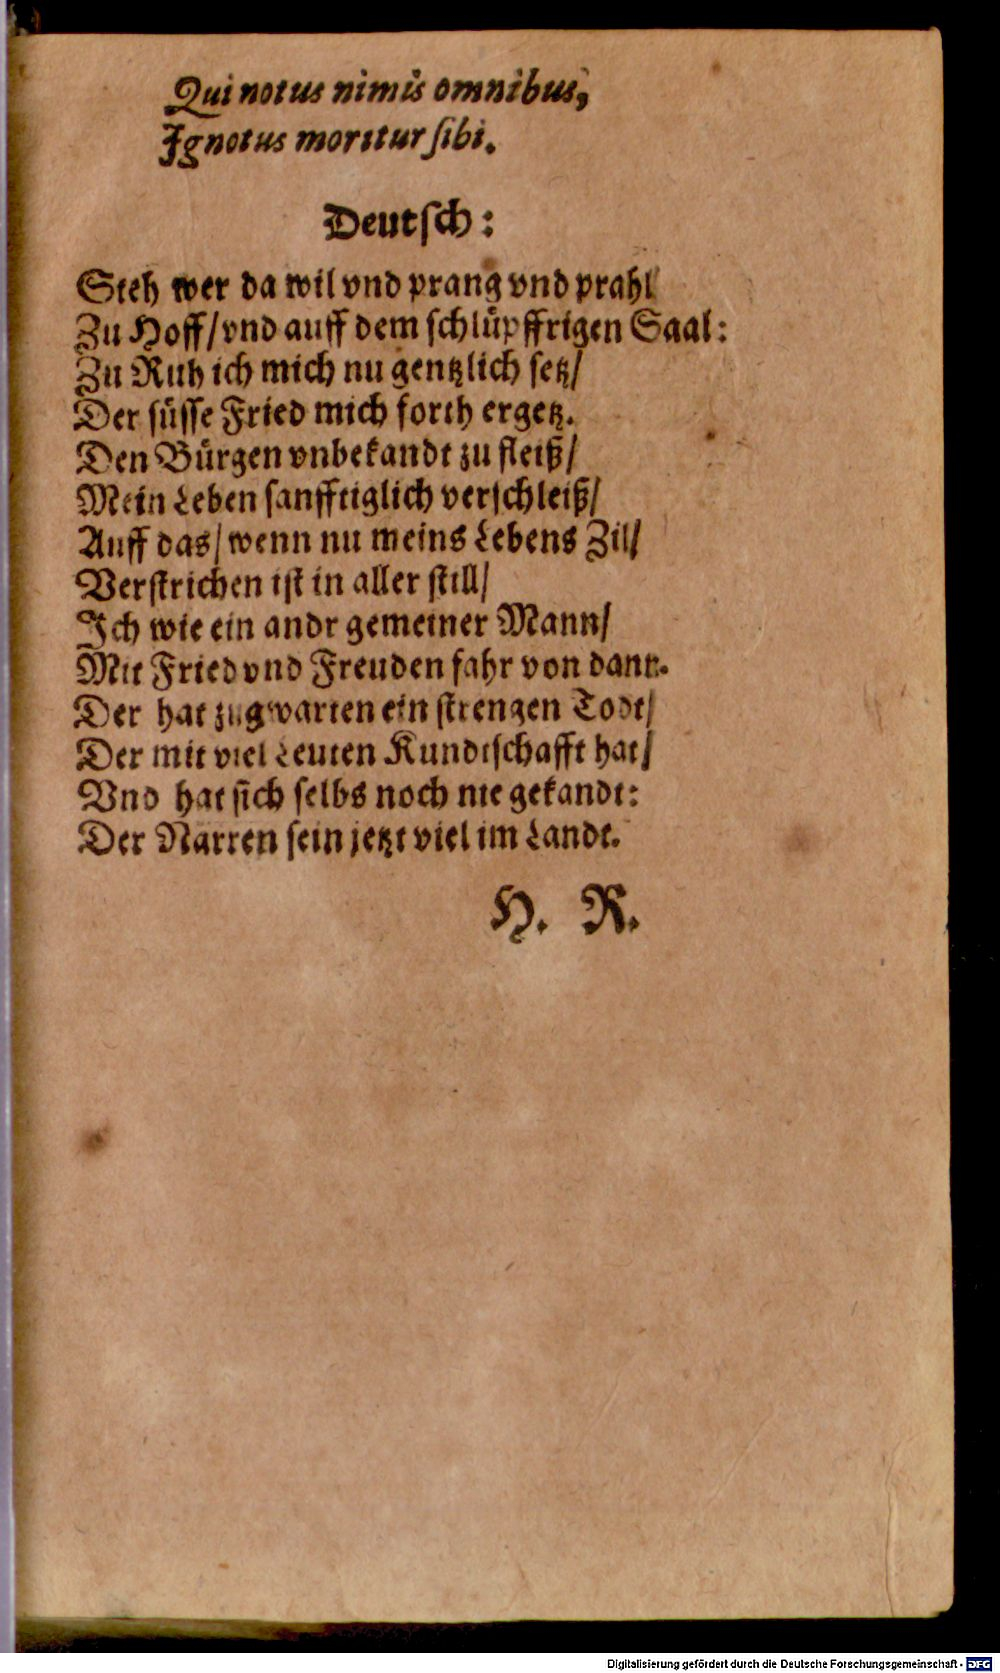 Qui notus nimis omnibus,
Ignotus moritur ſibi.
Deutſch:
Steh wer da wil vnd prang vnd prahl
Zu Hoff/ vnd auff dem ſchlüpffrigen Saal:
Zu Ruh ich mich nu gentzlich ſetz/
Der ſüſſe Fried mich forth ergetz.
Den Bürgen vnbekandt zu fleiß/
Mein Leben ſanfftiglich verſchleiß/
Auff das/ wenn nu meins Lebens Zil/
Verſtrichen iſt in aller ſtill/
Ich wie ein andr gemeiner Mann/
Mit Fried vnd Freuden fahr von dann.
Der hat zugwarten ein ſtrengen Todt/
Der mit viel Leuten Kundtſchafft hat/
Vnd hat ſich ſelbs noch nie gekandt:
Der Narren ſein jetzt viel im Landt.
H. R.
Digitalisierung gefördert durch die Deutsche Forschungsgemeinschaft - DFG